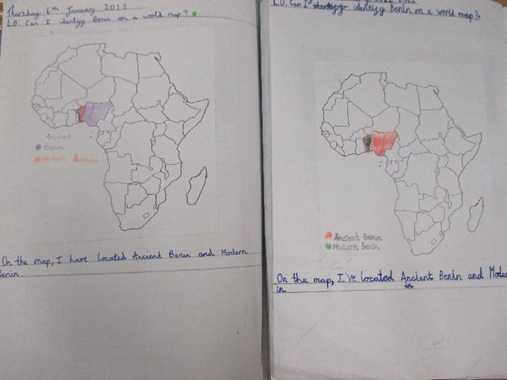 Thursday 6th January 2022
L.O: Can I identify Benin on a world map?
Ancient
Benin
Modern Benin
On the map, I have located Ancient Benin and Modern
Benin.
2022
L.O: Can I identify Benin on a world map?
Ancient Benin
Modern Benin
On the map, I've located Ancient Benin and Mode
in